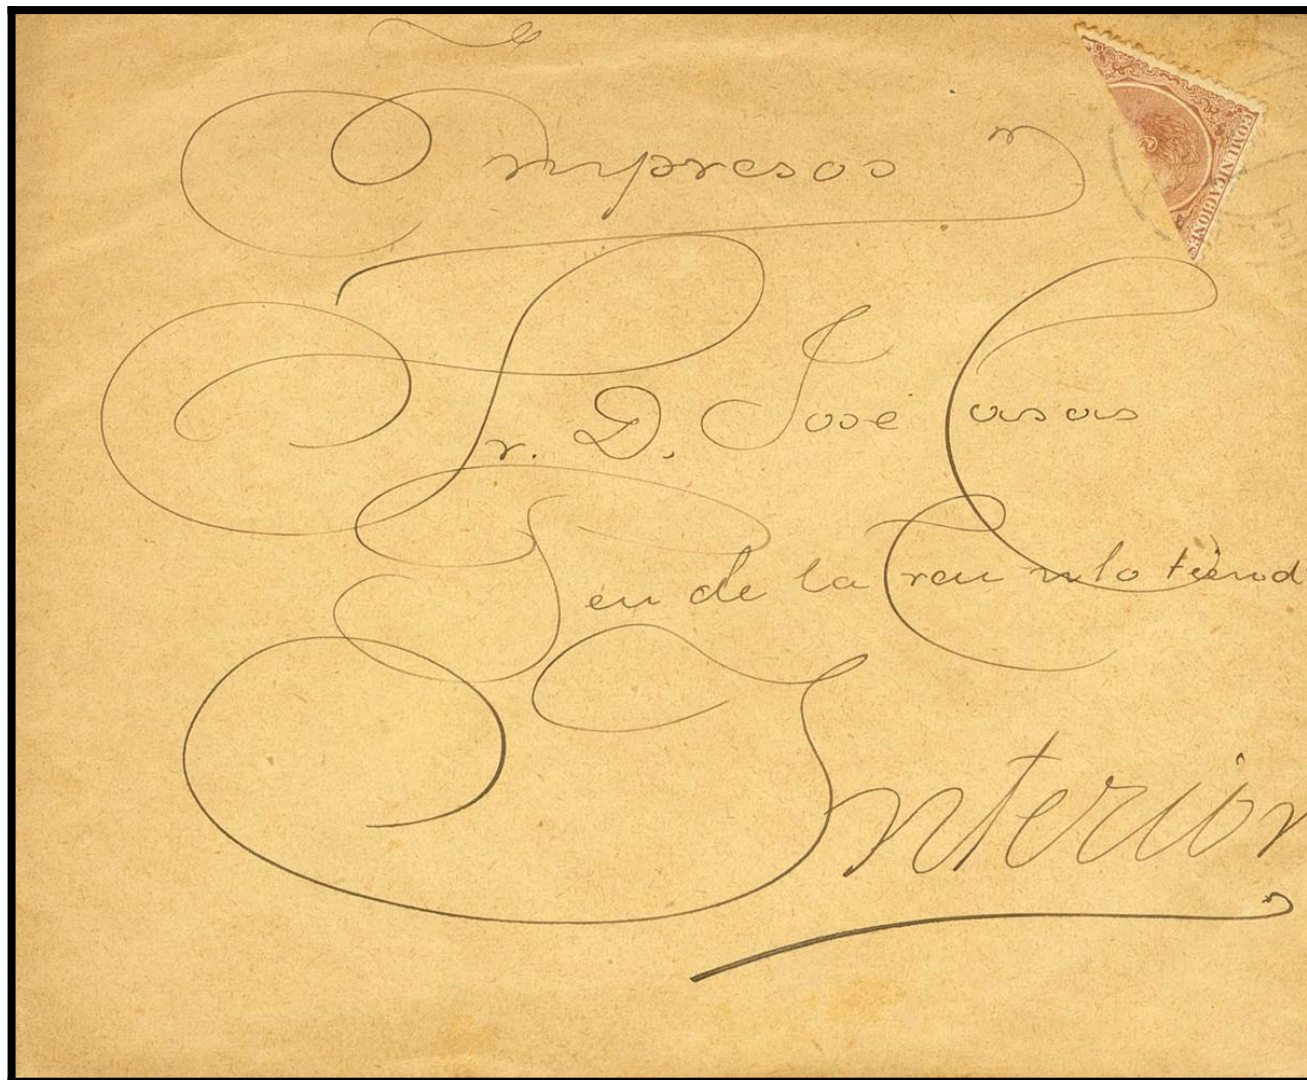 Impresos
COMUNICACIONES
Sr. D. José Casas
de la tiend
Interior